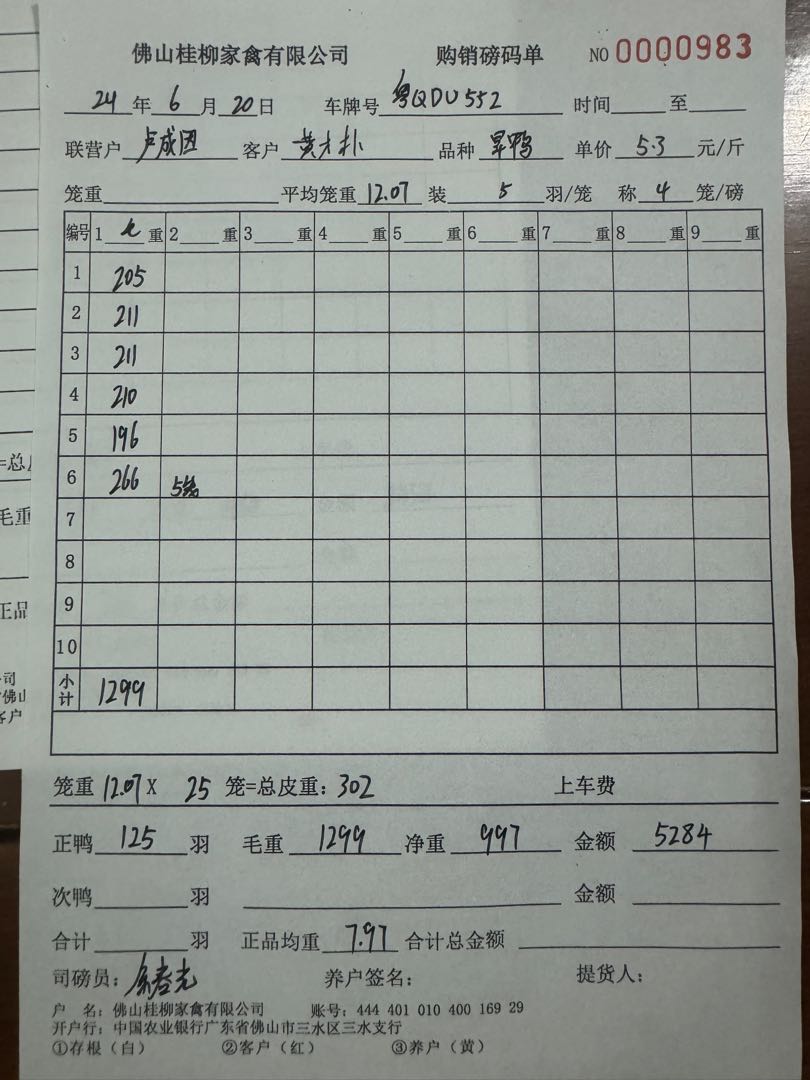 佛山桂柳家禽有限公司 购销磅码单 NO 0000983
24 年 6 月 20 日 车牌号 粤QDU552 时间 至
联营户 卢成团 客户 黄才扑 品种 旱鸭 单价 5.3 元/斤
笼重 平均笼重 12.07 装 5 羽/笼 称 4 笼/磅
编号 1 重 2 重 3 重 4 重 5 重 6 重 7 重 8 重 9 重
1 205
2 211
3 211
4 210
5 196
6 266 5笼
7
8
9
10
小计 1299
笼重 12.07 X 25 笼=总皮重: 302 上车费
正鸭 125 羽 毛重 1299 净重 997 金额 5284
次鸭 羽 金额
合计 羽 正品均重 7.97 合计总金额
司磅员: 养户签名: 提货人:
户 名: 佛山桂柳家禽有限公司 账号: 444 401 010 400 169 29
开户行: 中国农业银行广东省佛山市三水区三水支行
①存根（白） ②客户（红） ③养户（黄）
=总
毛重
正品
司
佛山
客户